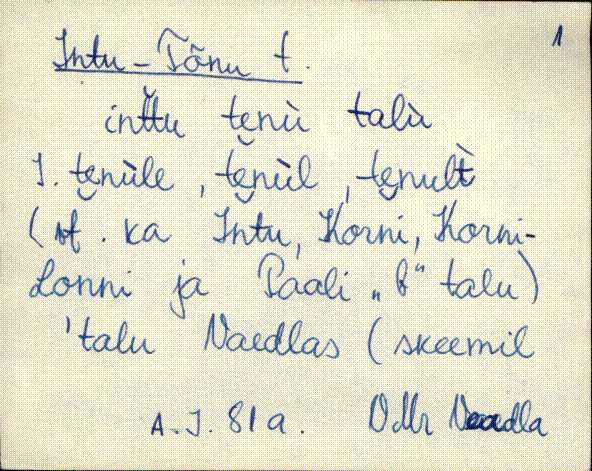 1
Intu-Tõnu t.
inttu te̮nù talù
I. te̮nùle, te̮nùl, te̮nult̀
(vt. ka Intu, Korni, Korni-
Lonni ja Paali „b" talu)
'talu Naedlas (skeemil
A.J. 81a. VMr Naedla